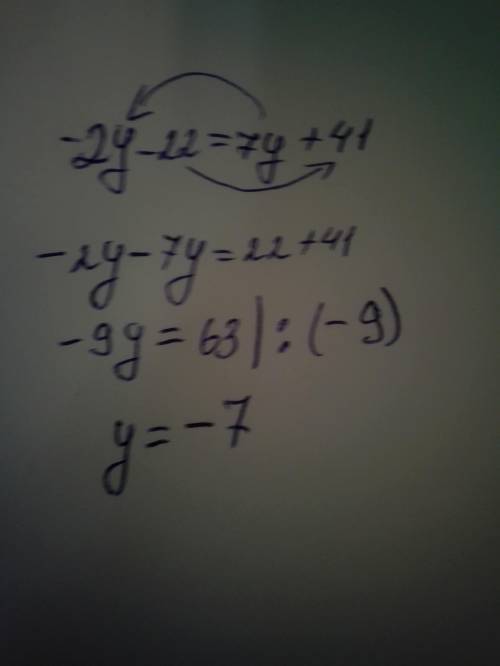 -2y-22=7y+41
-2y-7y=22+41
-9y=63|:(-9)
y=-7